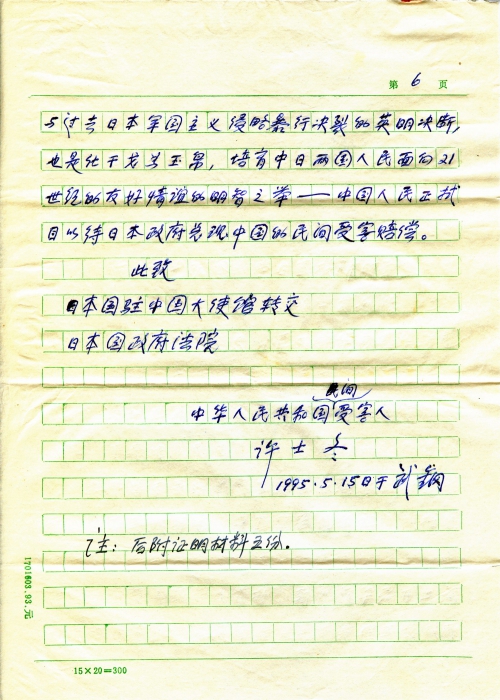 第 6 页
与过去日本军国主义侵略暴行决裂的英明决断,
也是化干戈为玉帛,培育中日两国人民面向21
世纪的友好情谊的明智之举——中国人民正拭
目以待日本政府兑现中国的民间受害赔偿。
此致
日本国驻中国大使馆转交
日本国政府法院
民间
中华人民共和国受害人
许士冬
1995.5.15日于武钢
注:后附证明材料五份。
1701603.93.元
15×20=300